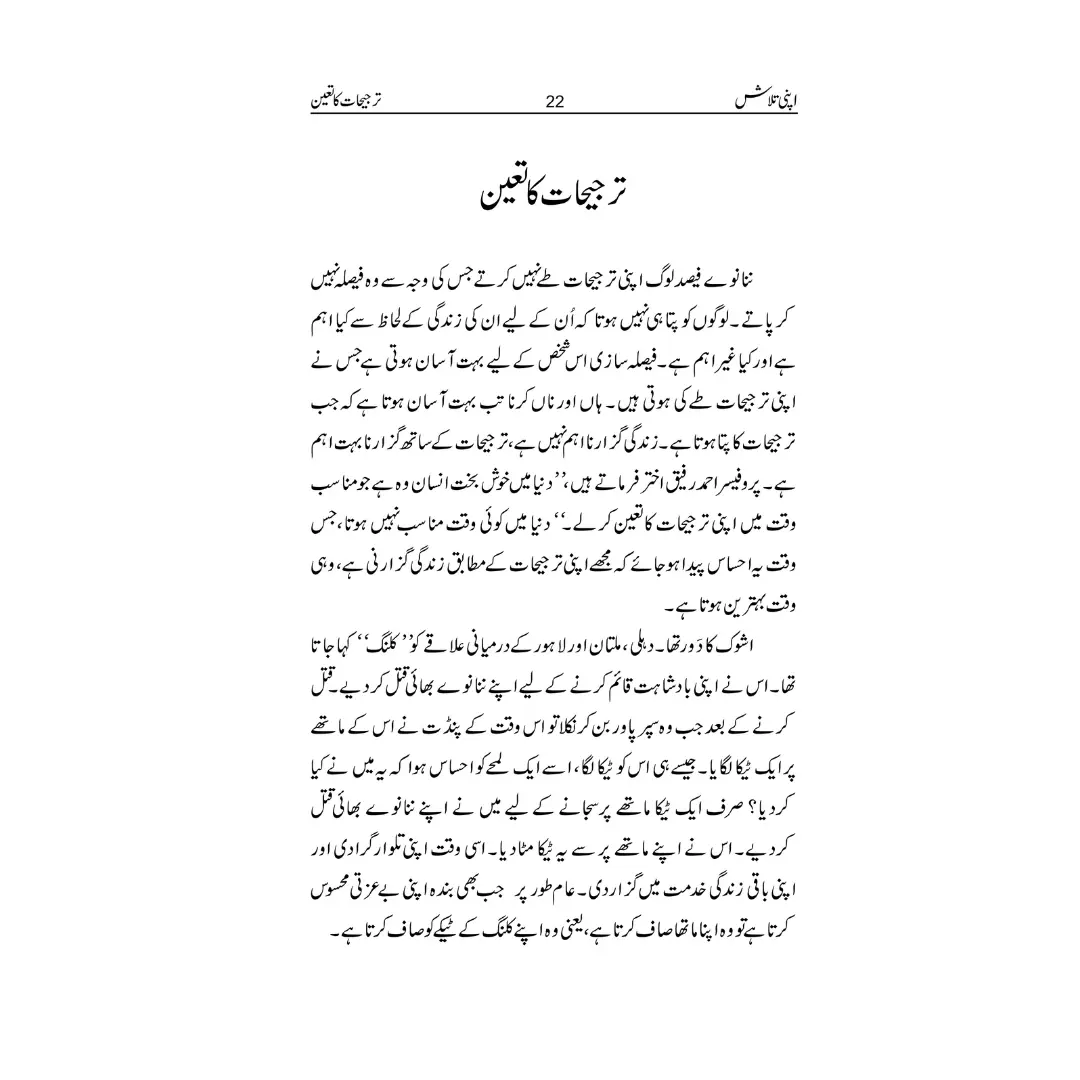 اپنی تلاش 22 ترجیحات کا تعین
ترجیحات کا تعین
ننانوے فیصد لوگ اپنی ترجیحات طے نہیں کرتے جس کی وجہ سے وہ فیصلہ نہیں
کر پاتے۔ لوگوں کو پتا ہی نہیں ہوتا کہ اُن کے لیے ان کی زندگی کے لحاظ سے کیا اہم
ہے اور کیا غیر اہم ہے۔ فیصلہ سازی اس شخص کے لیے بہت آسان ہوتی ہے جس نے
اپنی ترجیحات طے کی ہوتی ہیں۔ ہاں اور ناں کرنا تب بہت آسان ہوتا ہے کہ جب
ترجیحات کا پتا ہوتا ہے۔ زندگی گزارنا اہم نہیں ہے، ترجیحات کے ساتھ گزارنا بہت اہم
ہے۔ پروفیسر احمد رفیق اختر فرماتے ہیں، ’’دنیا میں خوش بخت انسان وہ ہے جو مناسب
وقت میں اپنی ترجیحات کا تعین کر لے۔‘‘ دنیا میں کوئی وقت مناسب نہیں ہوتا، جس
وقت یہ احساس پیدا ہو جائے کہ مجھے اپنی ترجیحات کے مطابق زندگی گزارنی ہے، وہی
وقت بہترین ہوتا ہے۔
اشوک کا دَور تھا۔ دہلی، ملتان اور لاہور کے درمیانی علاقے کو ’’کلنگ‘‘ کہا جاتا
تھا۔ اس نے اپنی بادشاہت قائم کرنے کے لیے اپنے ننانوے بھائی قتل کر دیے۔ قتل
کرنے کے بعد جب وہ سپر پاور بن کر نکلا تو اس وقت کے پنڈت نے اس کے ماتھے
پر ایک ٹیکا لگایا۔ جیسے ہی اس کو ٹیکا لگا، اسے ایک لمحے کو احساس ہوا کہ یہ میں نے کیا
کر دیا؟ صرف ایک ٹیکا ماتھے پر سجانے کے لیے میں نے اپنے ننانوے بھائی قتل
کر دیے۔ اس نے اپنے ماتھے پر سے یہ ٹیکا مٹا دیا۔ اسی وقت اپنی تلوار گرا دی اور
اپنی باقی زندگی خدمت میں گزار دی۔ عام طور پر جب بھی بندہ اپنی بے عزتی محسوس
کرتا ہے تو وہ اپنا ماتھا صاف کرتا ہے، یعنی وہ اپنے کلنگ کے ٹیکے کو صاف کرتا ہے۔